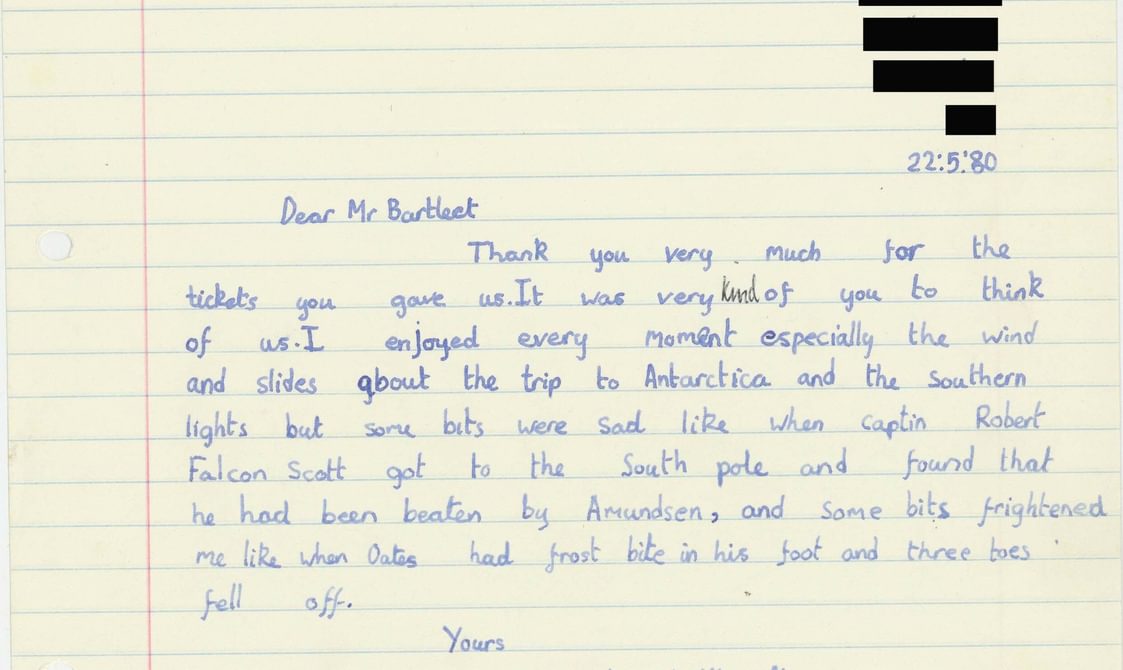 22:5:'80
Dear Mr Bartleet
Thank you very much for the
tickets you gave us.It was very kind of you to think
of us.I enjoyed every moment especially the wind
and slides about the trip to Antarctica and the southern
lights but some bits were sad like when captin Robert
Falcon Scott got to the South pole and found that
he had been beaten by Amundsen, and some bits frightened
me like when Oates had frost bite in his foot and three toes
fell off.
Yours